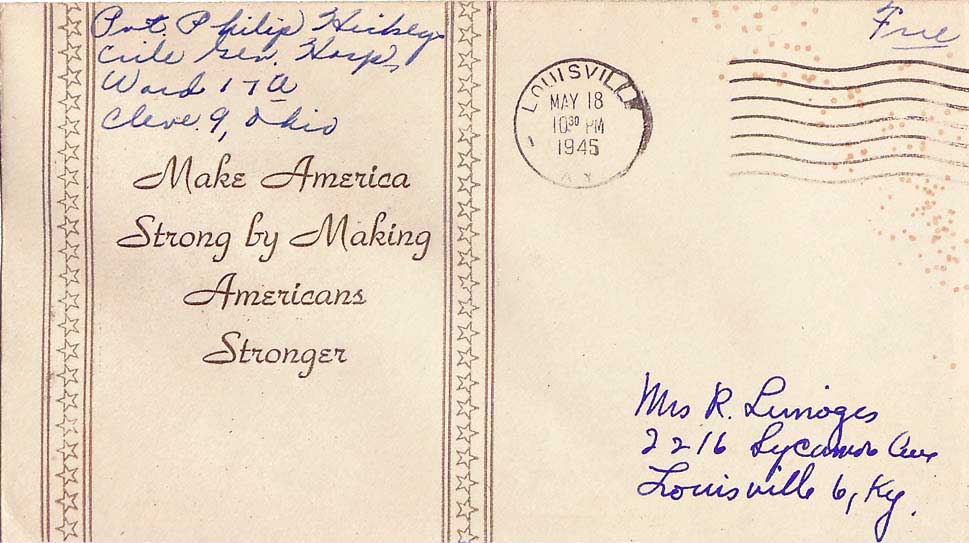 Pvt. Philip Hickey
Crile Gen. Hosp.
Ward 17A
Cleve. 9, Ohio
Make America
Strong by Making
Americans
Stronger
Free
LOUISVILLE
MAY 18
10 30 PM
1945
KY
Mrs R. Limoges
2216 Sycamore Ave
Louisville 6, Ky.